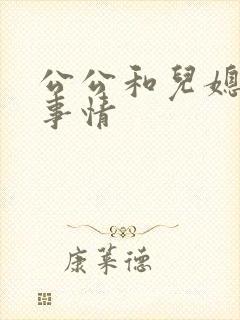 公公和兒媳
事情
康萊德